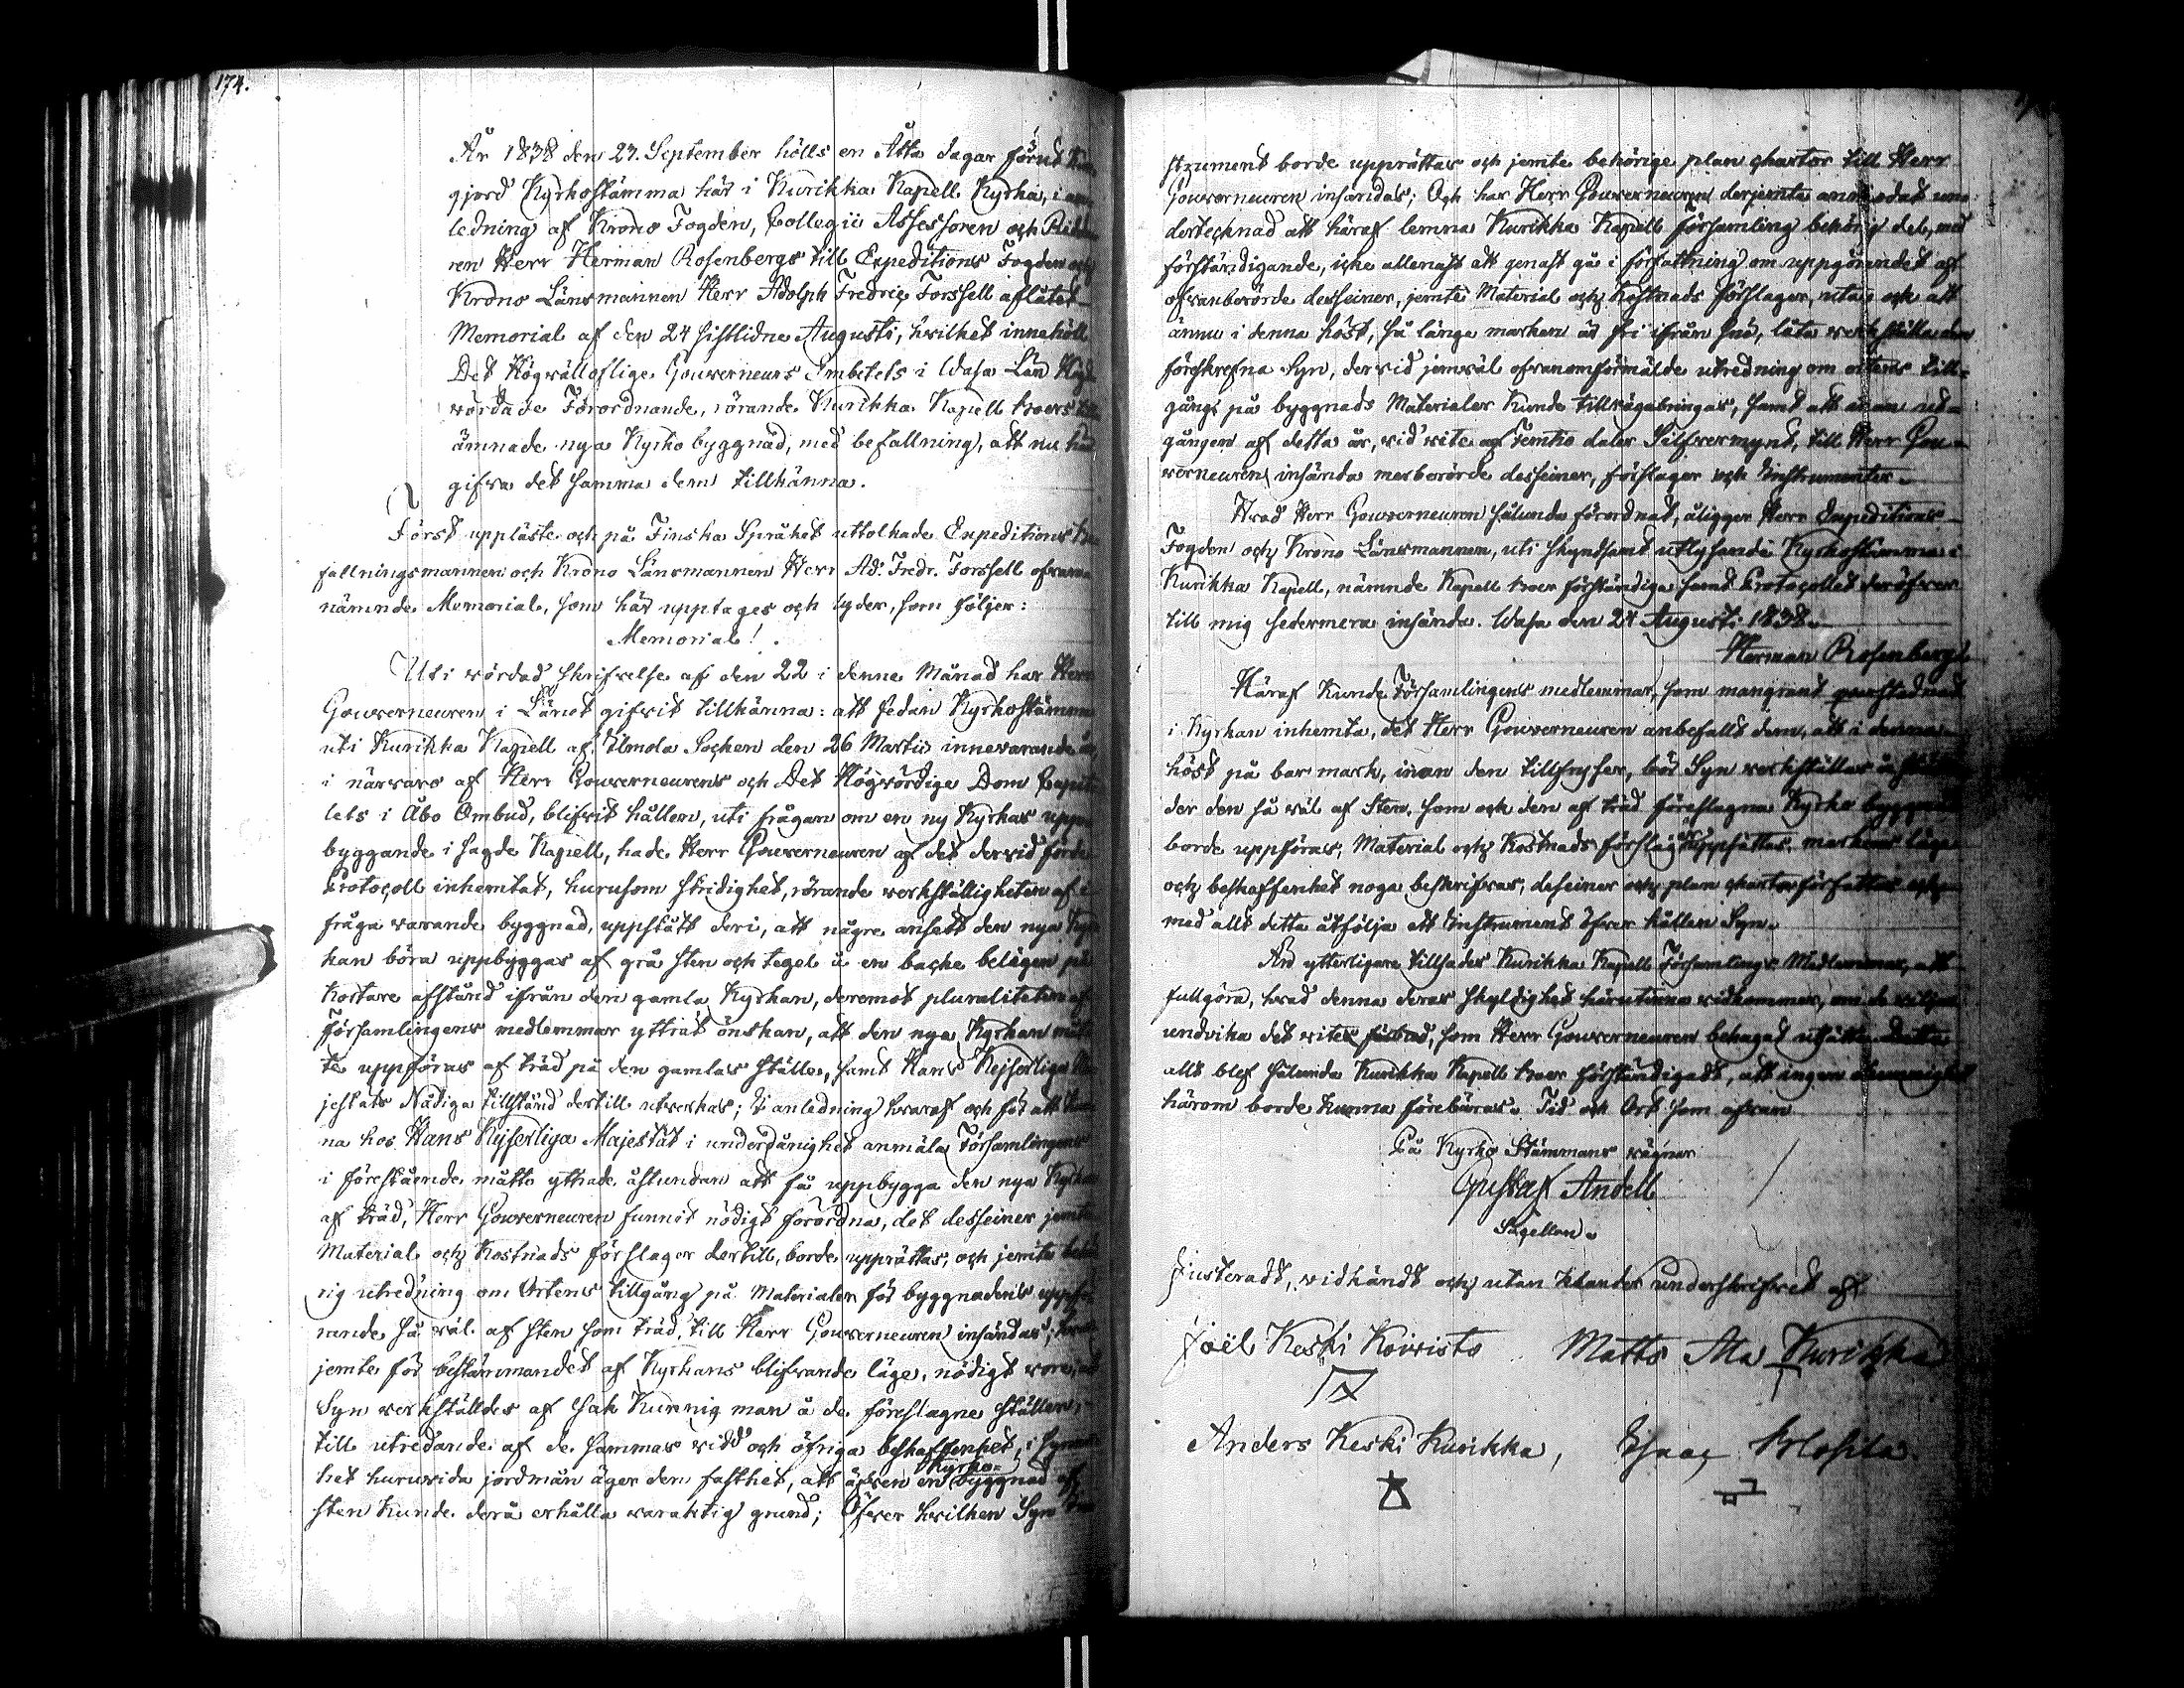 174.
År 1838 den 23. September hölls en Åtta dagar förut
gjord Kyrkostämma här i Kurikka Kapell Kyrka, i an
ledning af Krono Fogden, Collegii Assessoren och Ridda
ren Herr Herman Rosenbergs till Expeditions Fogden och
Krono Länsmannen Herr Adolph Fredric Forssell aflåtet
Memorial af den 24 sistlidne Augusti, hvilket innehöll
Det Högwällofliga Gouverneurs Embetets i Wasa Län Hög
wördade Förordnande, rörande Kurikka Kapell boers till
ämnade nya Kyrko byggnad, med befallning, att nu
gifva det samma dem tillkänna.
Först uppläste och på Finska Språket uttolkade Expeditions be
fallningsmannen och Krono Länsmannen Herr Ad. Fredr. Forssell ofvan
nämnde Memorial, som här upptages och lyder, som följer:
Memorial!
Uti wördad skrifvelse af den 22 i denne Månad har Herr
Gouverneuren i Länet gifvit tillkänna: att sedan Kyrkostämma
uti Kurikka Kapell af Ilmola Socken den 26 Martii innevarande år
i närvaro af Herr Gouverneurens och Det Högwördige Dom Capit
lets i Åbo Ombud, blifvit hållen, uti frågan om en ny Kyrkas upp
byggande i sagde Kapell, hade Herr Gouverneuren af det dervid förde
Protocoll inhemtat, hurusom stridighet, rörande verkställigheten af i
fråga warande byggnad, uppstått deri, att någre ansett den nya Kyr
kan böra uppbyggas af grå sten och tegel å en backe belägen på
kortare afstånd ifrån den gamla Kyrkan, deremot pluraliteten af
Församlingens medlemmar yttrat önskan, att den nya Kyrkan måt
te uppföras af träd på den gamlas ställe, samt Hans Kejserliga Ma
jestäts Nådiga tillstånd dertill utverkas; I anledning hvaraf och för att kun
na hos Hans Kejserliga Majestät i underdånighet anmäla Församlingens
i förestående måtto yttrade åstundan att få uppbygga den nya Kyrka
af träd, Herr Gouverneuren funnit nödigt förordna, det desseiner jemte
Material och Kostnads förslager dertill, borde upprättas, och jemte behö
rig utredning om Ortens tillgång på Materialer för byggnadens uppfö
rande så wäl af sten som träd, till Herr Gouverneuren insändas;
jemte för bestämmandet af Kyrkans blifvande läge, nödigt wore, att
Syn verkställdes af sak kunnig man å de föreslagne ställen,
till utredande af de sammas widd och öfriga beskaffenhet, i synner
het huruvida jordmån äger den fasthet, att äfven en Kyrko-byggnad af
sten kunde derå erhålla varaktig grund; Öfver hvilken Syn In
strument borde upprättas och jemte behörige plan chartor till Herr
Gouverneuren insändas; Och har Herr Gouverneuren derjemte anmodat un
dertecknad att häraf lemna Kurikka Kapell församling behörig del, med
förständigande, icke allenast att genast gå i författning om uppgörandet af
ofvanberörde desseiner, jemte Material och Kostnads förslager, utan ock att
ännu i denna höst, så länge marken är fri ifrån snö, låta verkställa den
föreskrefna Syn, dervid jemväl ofvanomförmälde utredning om ortens till-
gång på byggnads Materialer kunde tillvägabringas, samt att innan ut-
gången af detta år, vid vite af Femtio daler Silfvermynt, till Herr Gou-
verneuren insända merberörde desseiner, förslager och Instrumenter.
Hvad Herr Gouverneuren sålunda förordnat, åligger Herr Expeditions
Fogden och Krono Länsmannen, uti skyndsamt utlysande Kyrkostämma i
Kurikka Kapell, nämnde Kapell boer förständiga samt Protocollet deröfver
till mig sedermera insända. Wasa den 24 Augusti 1838.
Herman Rosenberg
Häraf kunde Församlingens medlemmar, som mangrant
i Kyrkan inhemta, det Herr Gouverneuren anbefallt dem, att i denna
höst på bar mark, innan den tillfryser, bör Syn verkställas å
der den så wäl af Sten, som ock den af träd föreslagna Kyrko byggnad
borde uppföras, Material och Kostnads förslag uppsättas, markens läge
och beskaffenhet noga beskrifvas, deseiner och plan chartor författas och
med allt detta åtfölja ett Instrument öfver hållen Syn.
Än ytterligare tillsades Kurikka Kapell Församlings Medlemmar, att
fullgöra, hvad denna deras skyldighet härutinna vidkommer, om de vilja
undvika det vite, som Herr Gouverneuren behagat utsätta. Detta
allt blef sålunda Kurikka Kapell boer förständigadt, att ingen okunnighet
härom borde kunna förebäras. Tid och Ort som ofvan
På Kyrko Stämmans vägnar
Gustaf Andell
Sacellan.
Justeradt, vidkändt och utan klander underskrifvet af
Joël Keski Koivisto Matts Ala Kurikka
Anders Keski Kurikka, Isaac